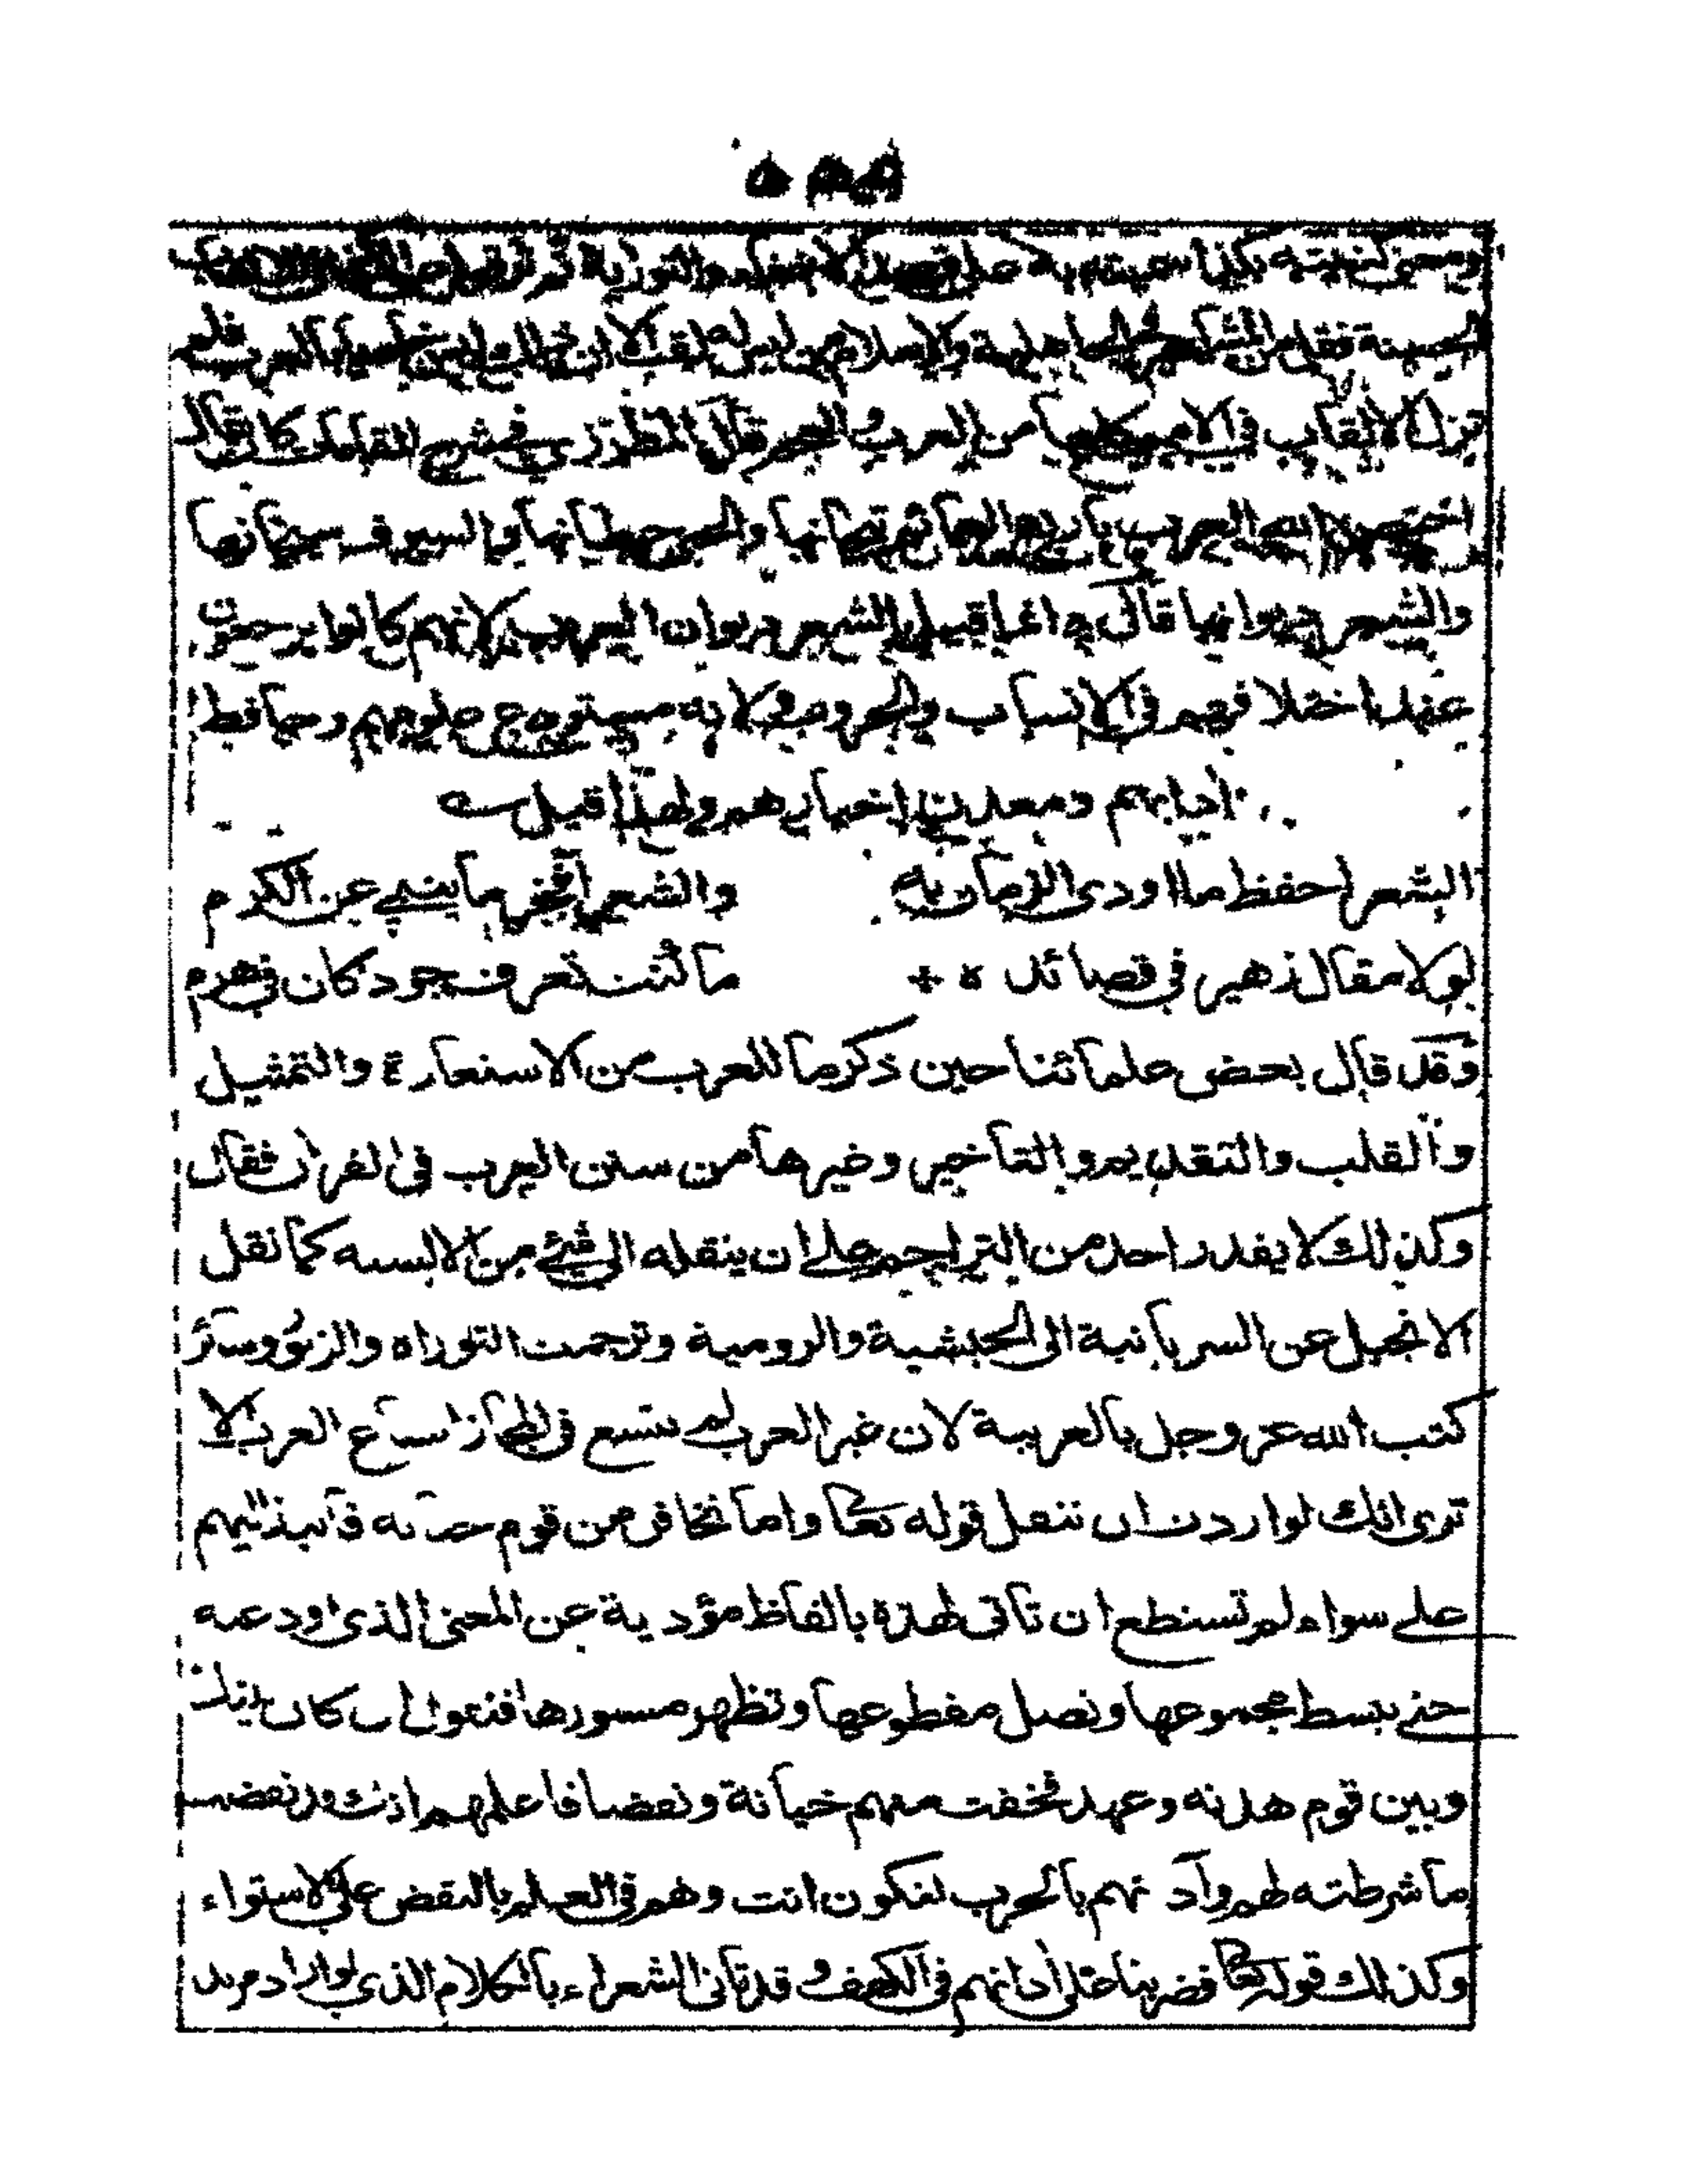 ومعنى كنيته بكذا سميته به على قصد الاخفاء والتورية ثم ترقوا عن الكنى
الحسنة فقل من المشاهير في الجاهلية والاسلام من ليس له لقب الا ان ذلك ليس خاصا بالعرب فلم
تزل الالقاب في الامم كلها من العرب والعجم قال المطرزي في شرح المقامات كان يقال
اختص الله العرب باربع العمائم تيجانها والحبى حيطانها والسيوف سيجانها
والشعر ديوانها قال وانما قيل الشعر ديوان العرب لانهم كانوا يرجعون
عند اختلافهم في الانساب والحروب ولانه مستودع علومهم وحافظ
ادابهم ومعدن اخبارهم ولهذا قيل
الشعر احفظ ما اودى الزمان به والشعر افخر ما ينبي عن الكرم
لولا مقال زهير في قصائده ما كنت تعرف جود كان في هرم
وقد قال بعض علمائنا حين ذكر ما للعرب من الاستعارة والتمثيل
والقلب والتقديم والتاخير وغيرها من سنن العرب في القران فقال
وكذلك لا يقدر احد من التراجم على ان ينقله الى شيء من الالسنه كما نقل
الانجيل عن السريانية الى الحبشية والرومية وترجمت التوراه والزبور وسائر
كتب الله عز وجل بالعربية لان غير العرب لم تتسع في المجاز اتساع العرب الا
ترى انك لو اردت ان تنقل قوله تعا واما تخافن من قوم خيانه فانبذ اليهم
على سواء لم تستطع ان تاتي لهذه بالفاظ مؤدية عن المعنى الذي اودعته
حتى تبسط مجموعها وتصل مقطوعها وتظهر مستورها فتقول ان كان بينك
وبين قوم هدنه وعهد فخفت منهم خيانة ونقضا فاعلمهم انك قد نقضت
ما شرطته لهم واذنهم بالحرب لتكون انت وهم في العلم بالنقض على الاستواء
وكذلك قوله تعا فضربنا على اذانهم في الكهف وقد تاتي الشعراء بالكلام الذي لو اراد مريد